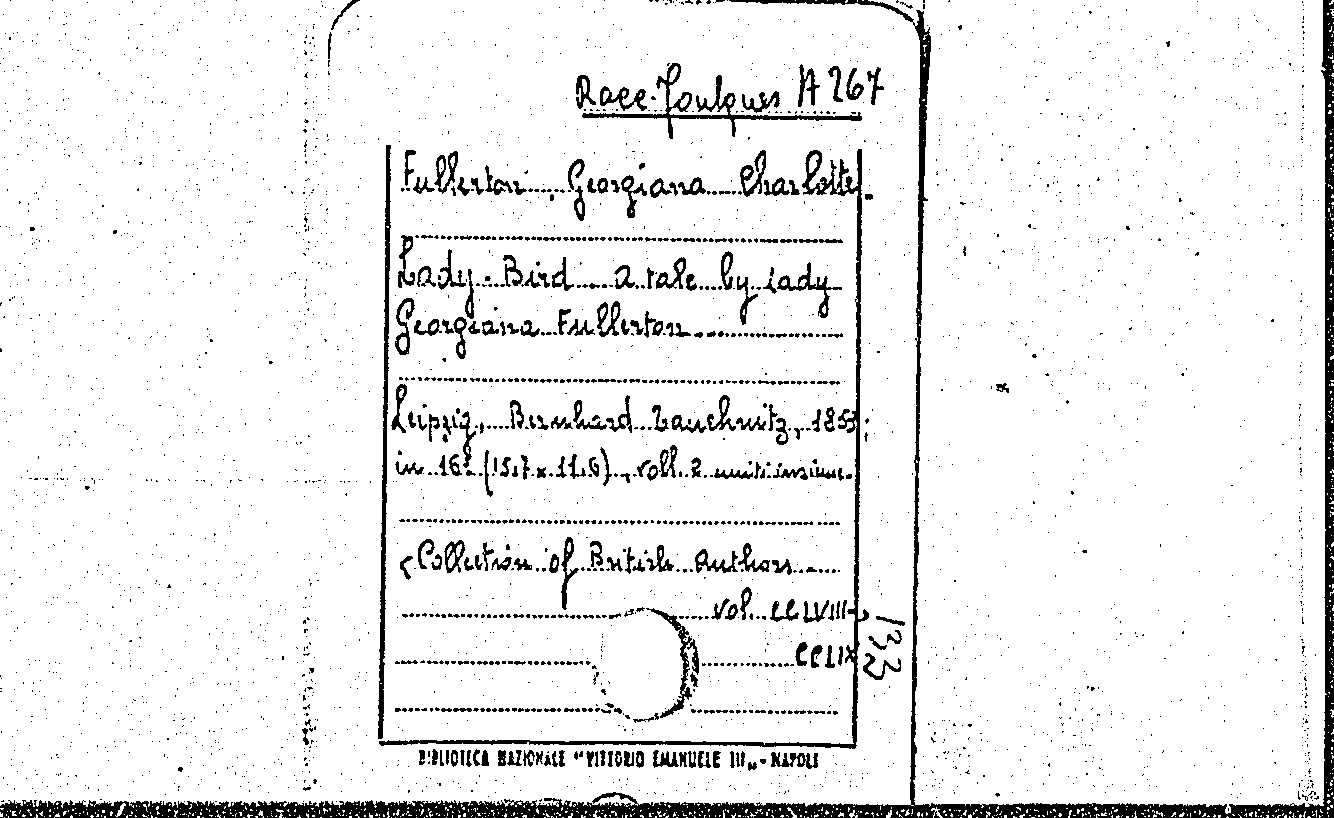 Race. Foulques A 267
Fullerton, Georgiana Charlotte.
Lady-Bird. A tale by Lady
Georgiana Fullerton
Leipzig, Bernhard Tauchnitz, 1853;
in 16º (15,7 x 11,6), voll. 2 uniti insieme.
(Collection of British Authors
vol. CCLVIII-
CCLIX
133
BIBLIOTECA NAZIONALE "VITTORIO EMANUELE III„ - NAPOLI